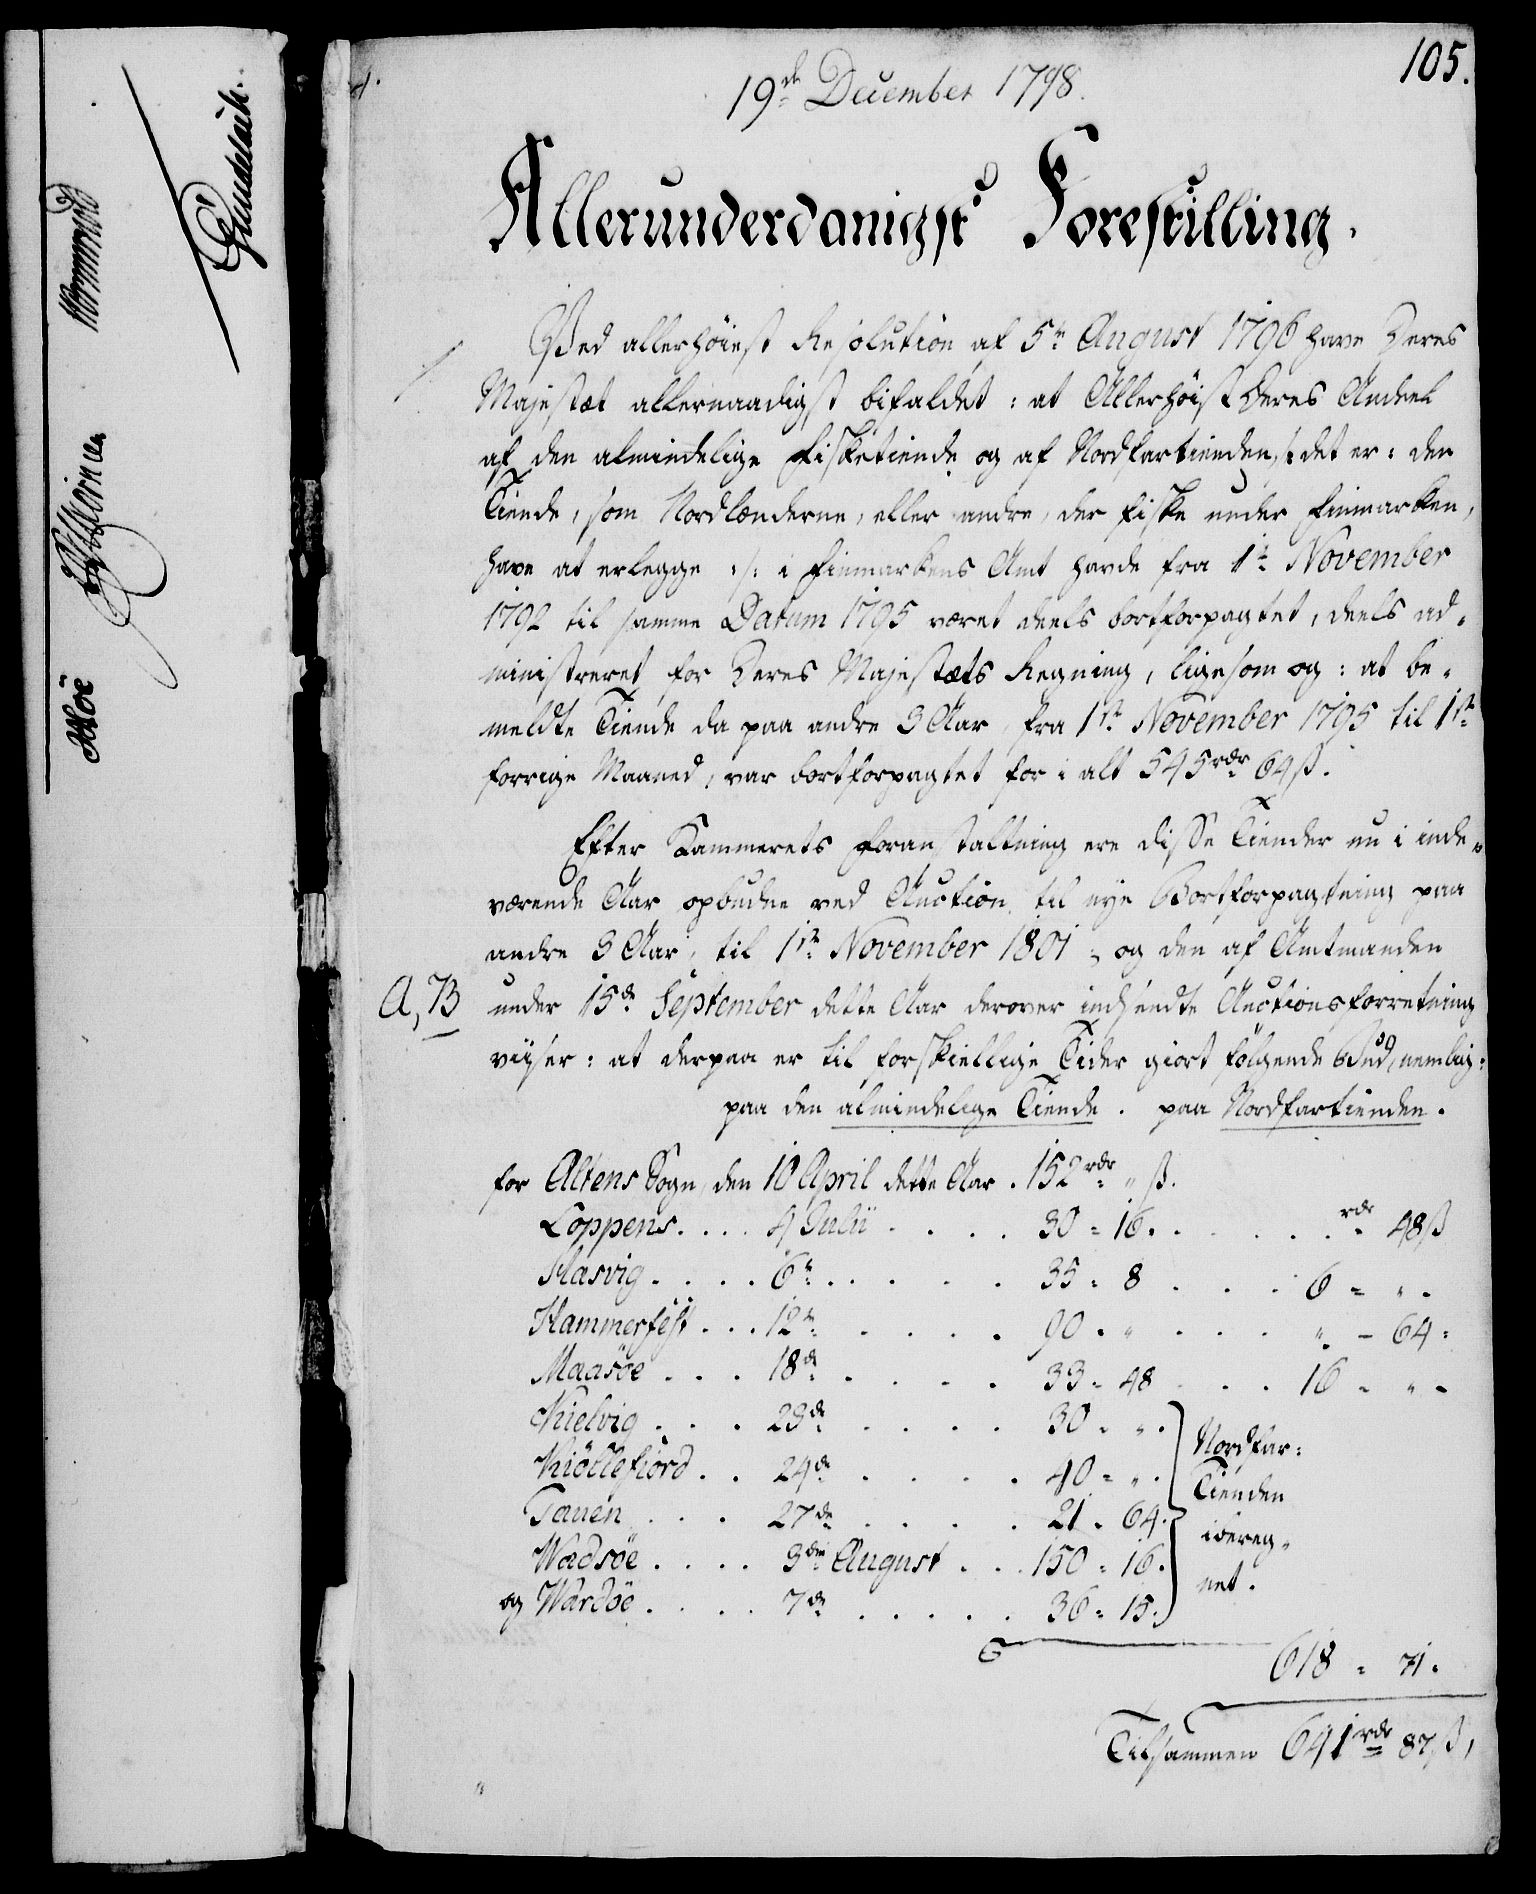 105.
19de December 1798.
Allerunderdanigst Forestilling.
Ved allerhöiest Resolution af 5te August 1796 have Deres
Majestæt allernaadigst bifaldet: at Allerhöist Deres Andeel
af den almindelige Fisketiende og af Nordfartienden, /: det er: den
Tiende, som Nordlænderne, eller andre, der fiske under Finmarken,
have at erlegge :/: i Finmarkens Amt havde fra 1te November
1792 til samme Datum 1795 været deels bortforpagtet, deels ad-
ministreret for Deres Majestæts Regning, ligesom og: at be-
meldte Tiende da paa andre 3 Aar, fra 1ste November 1795 til 1ste
forrige Maaned, var bortforpagtet for i alt 545 rdr 64 ß.
Efter Kammerets Foranstaltning ere disse Tiender nu i inde-
værende Aar opbudne ved Auction til nye Bortforpagtning paa
andre 3 Aar, til 1ste November 1801; og den af Amtmanden
A, B under 15de September dette Aar derover indsendte Auctionsforretning
viiser: at derpaa er til forskiellige Tider giort følgende Bud, nemlig:
paa den almindelige Tiende. paa Nordfartienden.
for Altens Sogn, den 10 April dette Aar. 152 rdr " ß.
Loppens.... 4 Julii .... 30 = 16. ..... rdr 48 ß
Hasvig.... 6te..... 35 = 8 ... 6 = " -
Hammerfest... 12te .... 90 = " ... " - 64 =
Maasöe... 18de .... 33 = 48 ... 16 = " -
Kielvig... 23de .... 30 = " .
Kiöllefiord.. 24de .... 40 = " .
Tanen... 27de .... 21 = 64.
Wadsöe.... 3die August... 150 = 16.
og Wardöe.... 7de ..... 36 = 15.
Nordfar=
Tienden
ibereg-
net.
618 = 71.
Tilsammen 641 rdr 87 ß,
Höe
Wormskiold